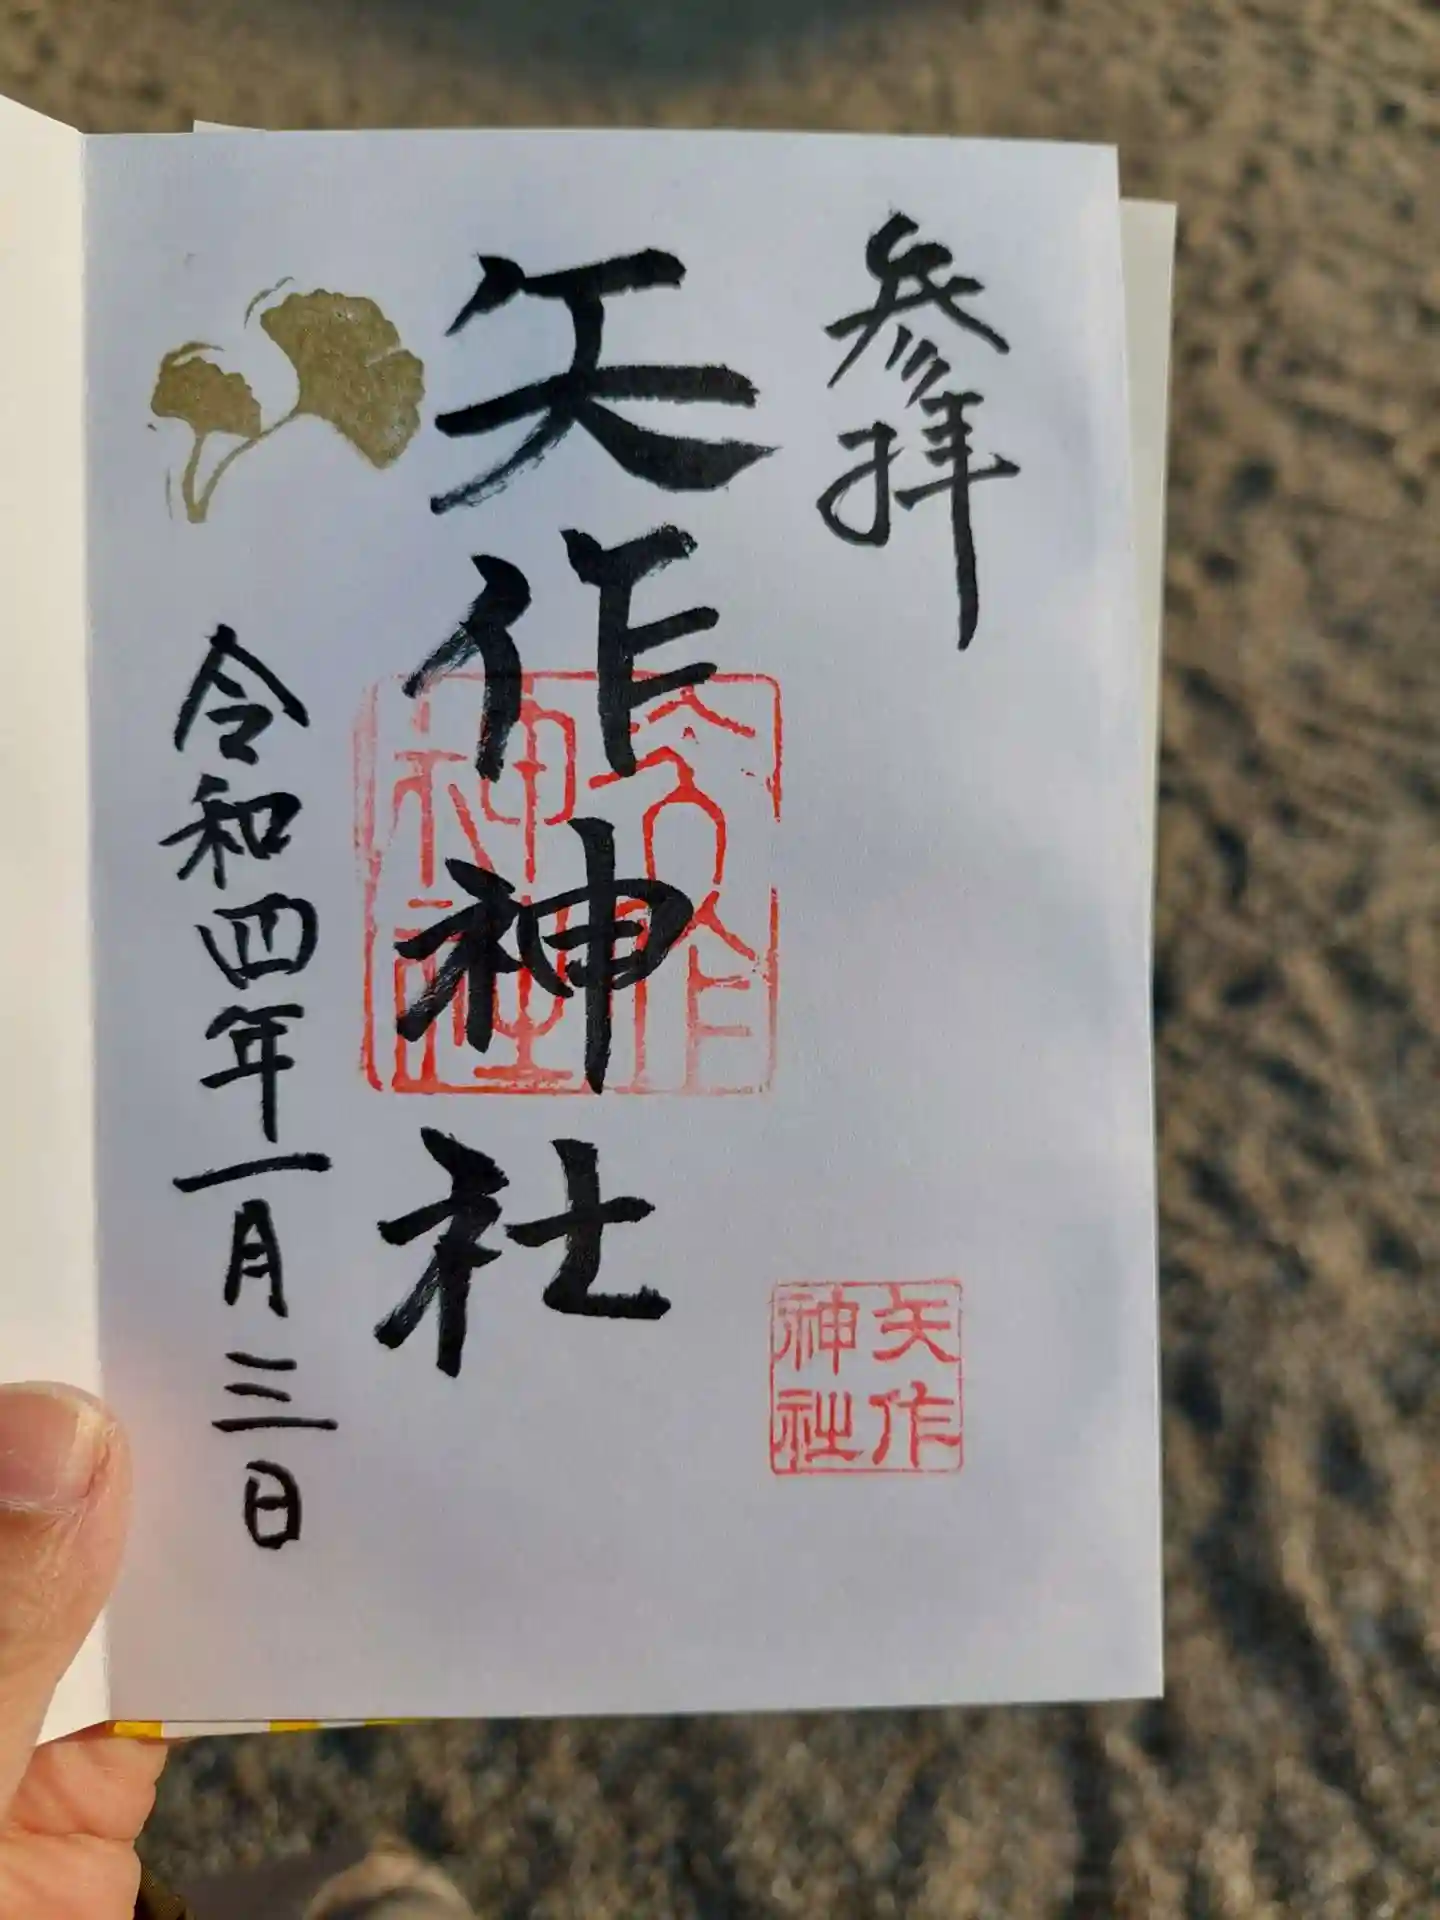 参拝
矢作神社
矢作
神社
矢作
神社
令和四年一月三日